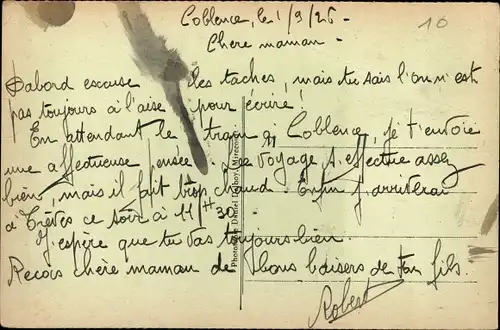 Coblence, le 1/9/26 -
10
Chère maman -
D'abord excuse les taches, mais tu sais l'on n'est
pas toujours à l'aise pour écrire !
En attendant le train à Coblence, je t'envoie
une affectueuse pensée. Le voyage s'effectue assez
bien, mais il fait trop chaud. Enfin j'arriverai
à Trèves ce soir à 11H30.
J'espère que tu vas toujours bien.
Reçois chère maman de bons baisers de ton fils.
Robert